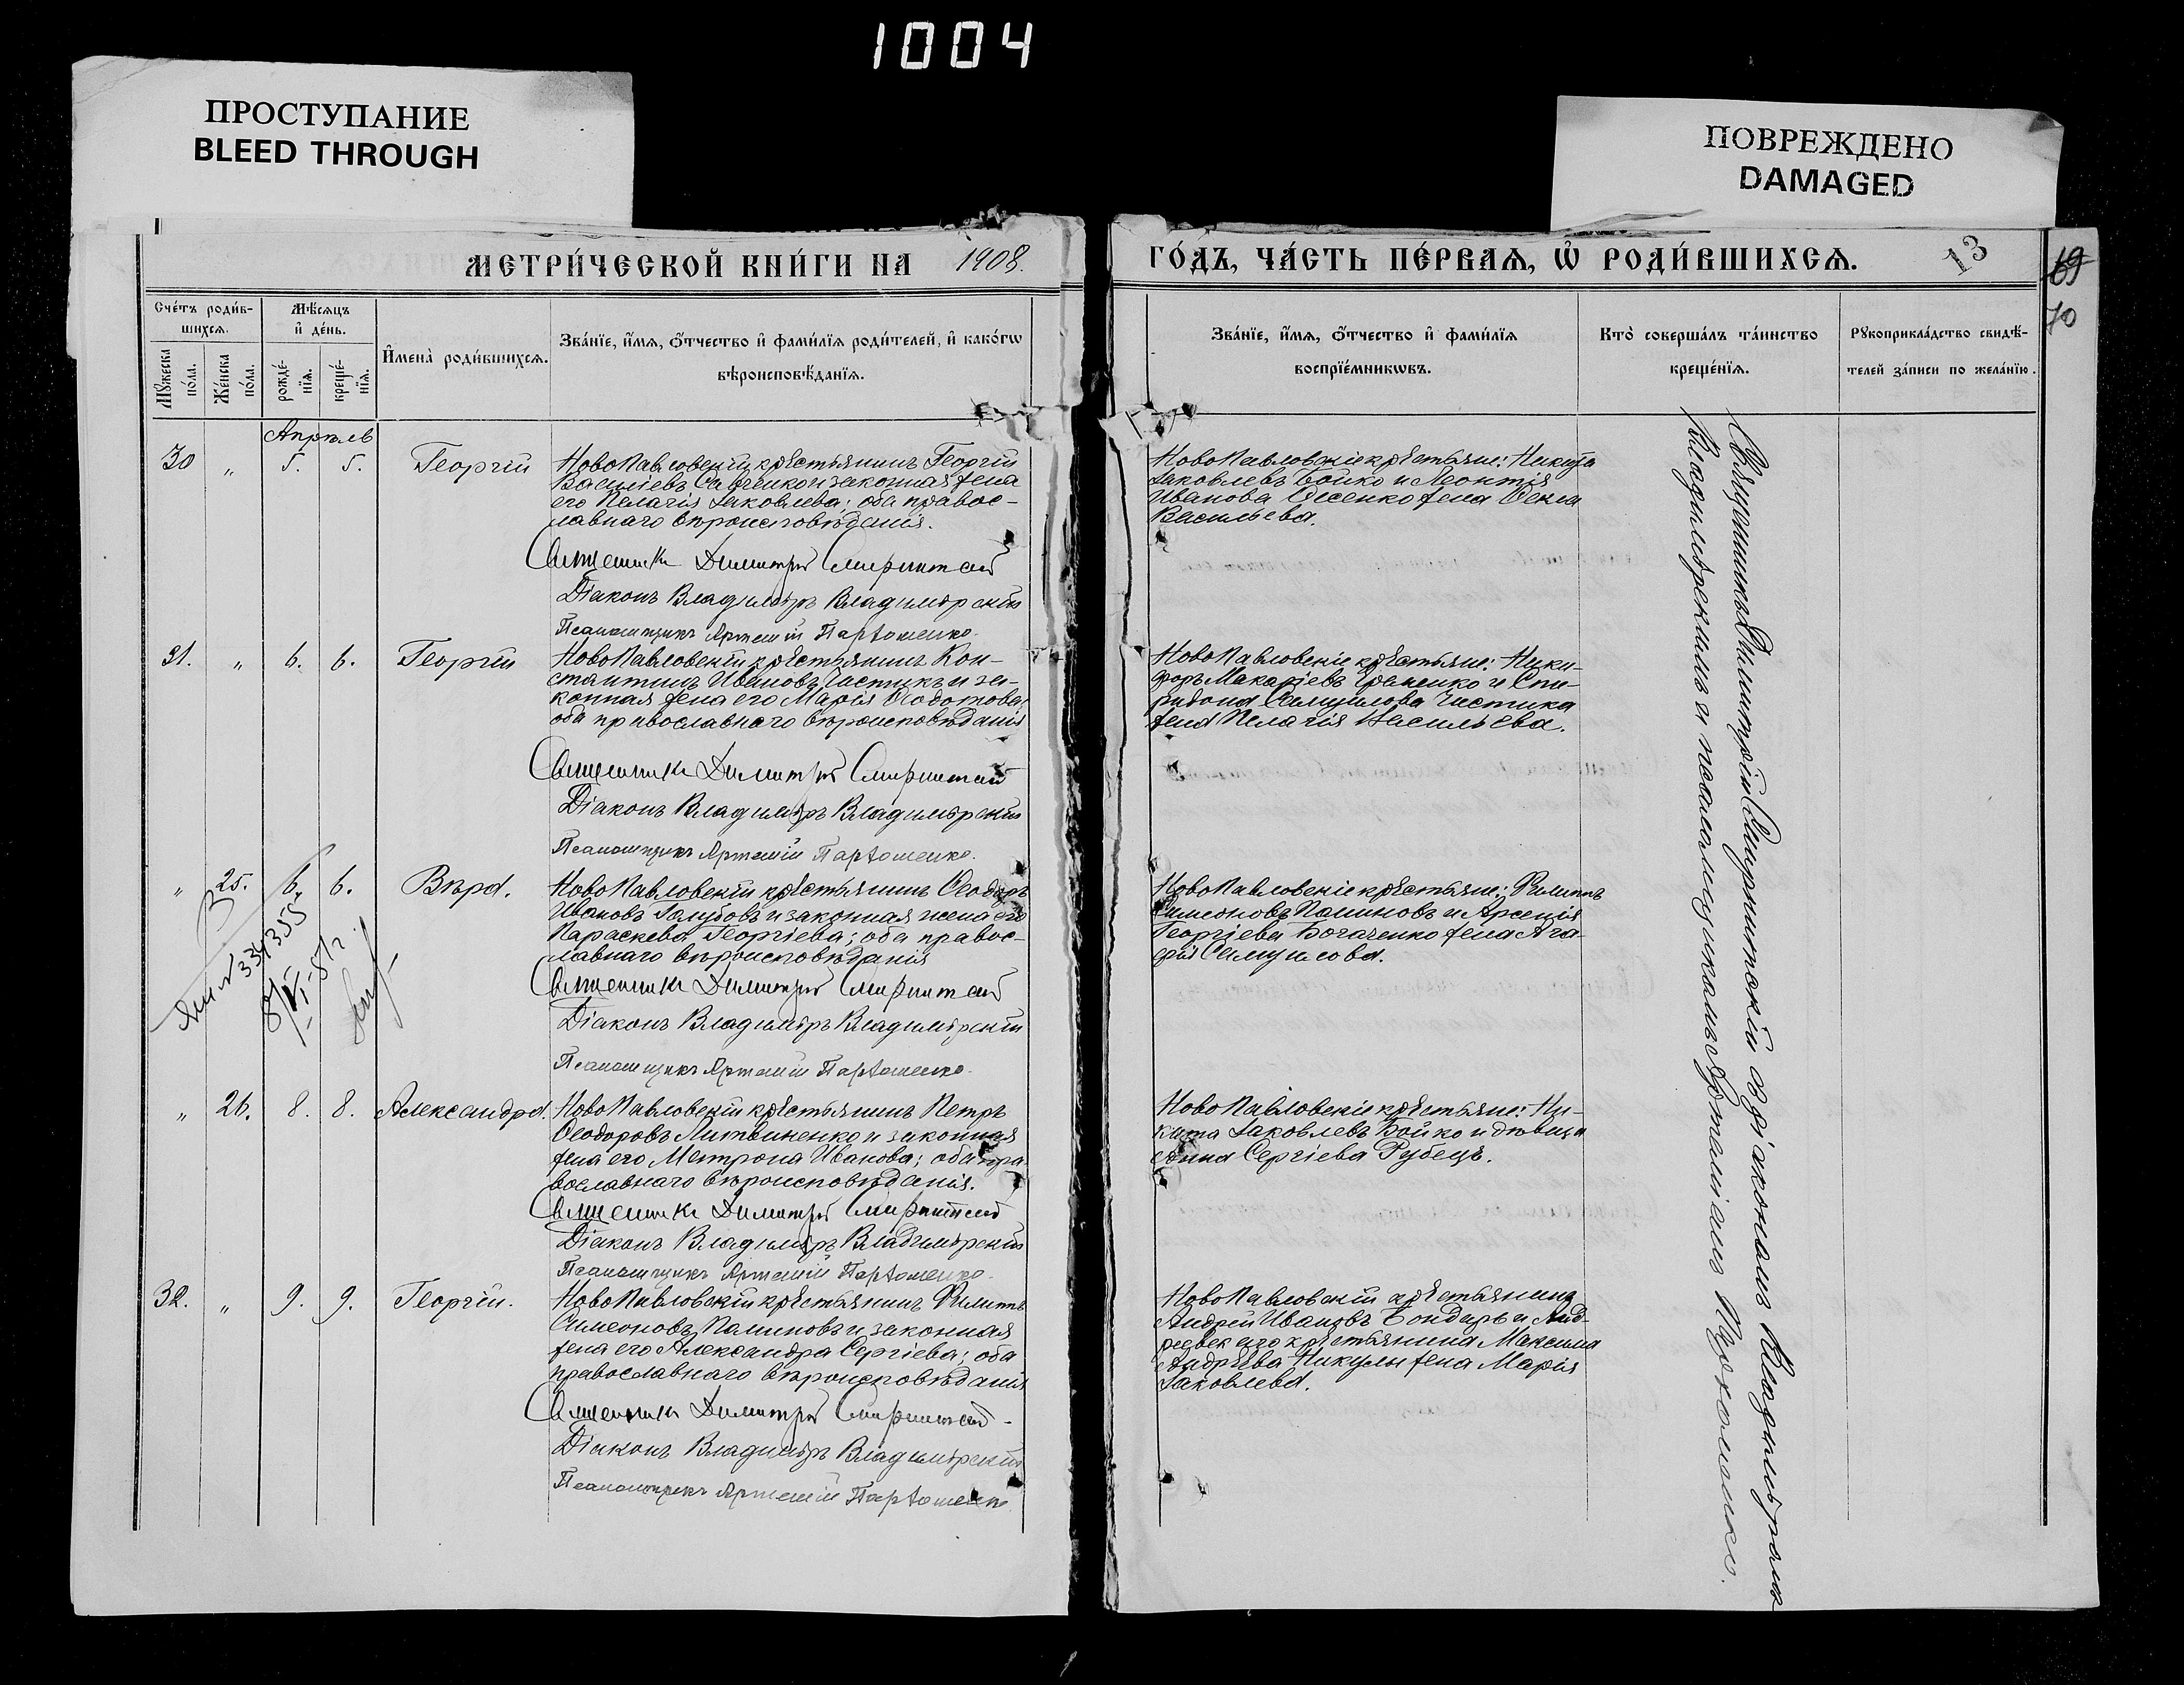 1004
ПРОСТУПАНИЕ
BLEED THROUGH
ПОВРЕЖДЕНО
DAMAGED
МЕТРИ́ЧЕСКОЙ КНИ́ГИ НА 1908.
ГО́ДЪ, ЧА́СТЬ ПЕ́РВАѦ, Ѡ҆ РОДИ́ВШИХСѦ.
13
69
70
Сче́тъ роди́в-
шихсѧ.
Мѣ́сѧцъ
и҆ де́нь.
Мꙋ́жеска
по́ла.
Же́нска
по́ла.
рожде́-
нїѧ.
креще́-
нїѧ.
И҆мена̀ роди́вшихсѧ.
Зва́нїе, и҆́мѧ, ѻ҆́тчество и҆ фами́лїѧ роди́телей, и҆ како́гѡ
вѣроисповѣ́данїѧ.
Зва́нїе, и҆́мѧ, ѻ҆́тчество и҆ фами́лїѧ
воспрїе́мникѡвъ.
Кто̀ соверша́лъ та́инство
креще́нїѧ.
Рꙋкоприкла́дство свидѣ́-
телей за́писи по жела́нїю.
Апрѣль
30 " 5. 5. Георгій
НовоПавловскій крестьянинъ Георгій
Васильевъ Савченко и законная жена
его Пелагія Іаковлева; оба правос-
лавнаго вѣроисповѣданія.
Священникъ Димитрій
Діаконъ Владиміръ Владимірскій
Псаломщикъ Артемій Пархоменко.
НовоПавловскіе крестьяне: Никита
Іаковлевъ Бойко и Леонтія
Иванова жена Ѳекла
Васильева.
31. " 6. 6. Георгій
НовоПавловскій крестьянинъ Кон-
стантинъ Ивановъ Чистикъ и за-
конная жена его Марія Ѳеодотова,
оба православнаго вѣроисповѣданія
Священникъ Димитрій
Діаконъ Владиміръ Владимірскій
Псаломщикъ Артемій Пархоменко.
НовоПавловскіе крестьяне: Ники-
форъ Макаріевъ и Спи-
ридона Самуилова Чистика
жена Пелагія Васильева.
" 25. 6. 6. Вѣра.
НовоПавловскій крестьянинъ Ѳеодоръ
Ивановъ Голубовъ и законная жена его
Параскева Георгіева; оба правос-
лавнаго вѣроисповѣданія
Священникъ Димитрій
Діаконъ Владиміръ Владимірскій
Псаломщикъ Артемій Пархоменко.
334355
НовоПавловскіе крестьяне: Филиппъ
Симеоновъ Палиновъ и Арсенія
Георгіева Богаченко жена Ага-
фія Самуилова.
" 26. 8. 8. Александра.
НовоПавловскій крестьянинъ Петръ
Ѳеодоровъ Литвиненко и законная
жена его Матрона Иванова; оба пра-
вославнаго вѣроисповѣданія.
Священникъ Димитрій
Діаконъ Владиміръ Владимірскій
Псаломщикъ Артемій Пархоменко.
НовоПавловскіе крестьяне: Ни-
кита Іаковлевъ Бойко и дѣвица
Анна Сергіева Рубецъ.
32. " 9. 9. Георгій.
НовоПавловскій крестьянинъ Филиппъ
Симеоновъ Палиновъ и законная
жена его Александра Сергіева; оба
православнаго вѣроисповѣданія
Священникъ Димитрій
Діаконъ Владиміръ Владимірскій
Псаломщикъ Артемій Пархоменко
НовоПавловскій крестьянинъ
Андрей Ивановъ Бондарь и Анд-
реевскаго крестьянина Максима
Андреева Никулы жена Марія
Іаковлева.
Священникъ Димитрій съ діакономъ Владиміромъ
Владимірскимъ и псаломщикомъ Артеміемъ Пархоменко.